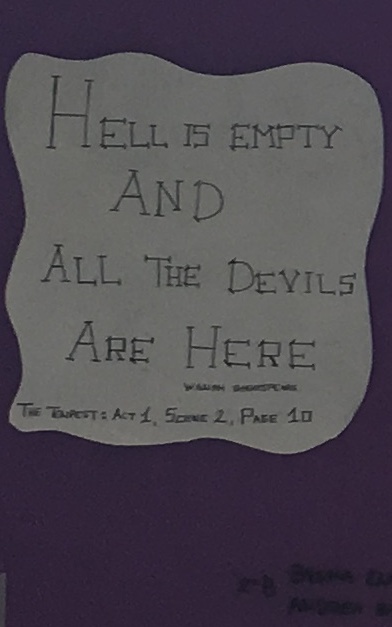 HELL IS EMPTY
AND
ALL THE DEVILS
ARE HERE
WILLIAM SHAKESPEARE
THE TEMPEST: ACT 1, SCENE 2, PAGE 10